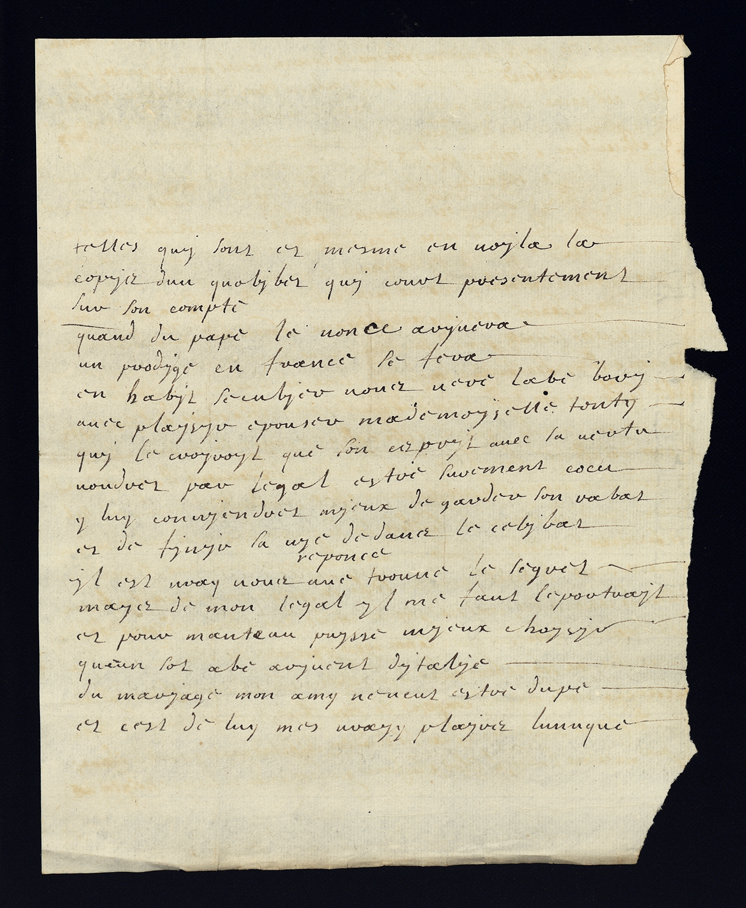 telles quj sont et mesme en vojla la
copjez dun quoljbet quj court presentement
sur son compte
quand du pape le nonce arjvera
un prodjge en france se fera
en habjt seculjer nouz
avec plajsjr epouser mademoyselle tonty
quj le crojroyt que son esprjt avec sa vertu
voudret par legal estre surement cocu
y luy convjendret mjeux de garder son rabat
et de fjnjr sa vye dedanz le celjbat
reponce
yl est vray nouz ave trouve le segret
mayz de mon legal yl me faut le portrayt
et pour manteau puysse mjeux choysjr
queun sot abe arjvent djtalje
du marjage mon amy neveut estre dupe
et cest de luy mes vrayy plajrez lunuque